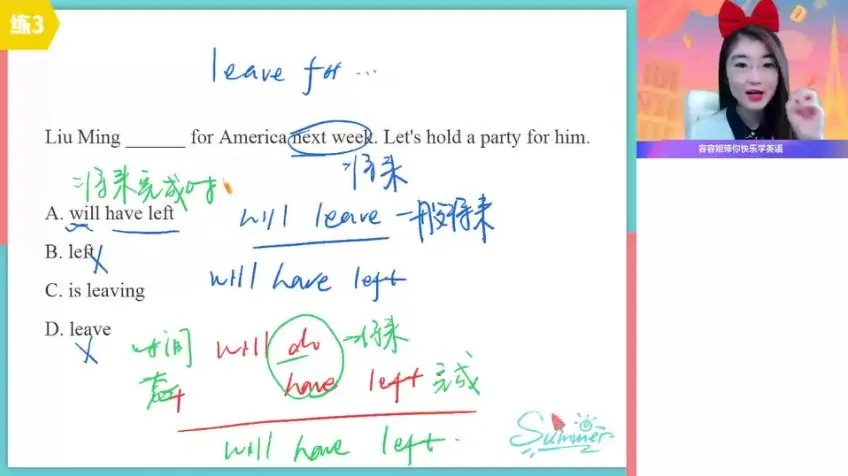 练3
leave for ...
Liu Ming ______ for America next week. Let's hold a party for him.
将来
将来完成时
A. will have left
will leave 一般将来
B. left
will have left
C. is leaving
D. leave
时间
will do 将来
have left 完成
will have left.
Summer
容容姐带你快乐学英语